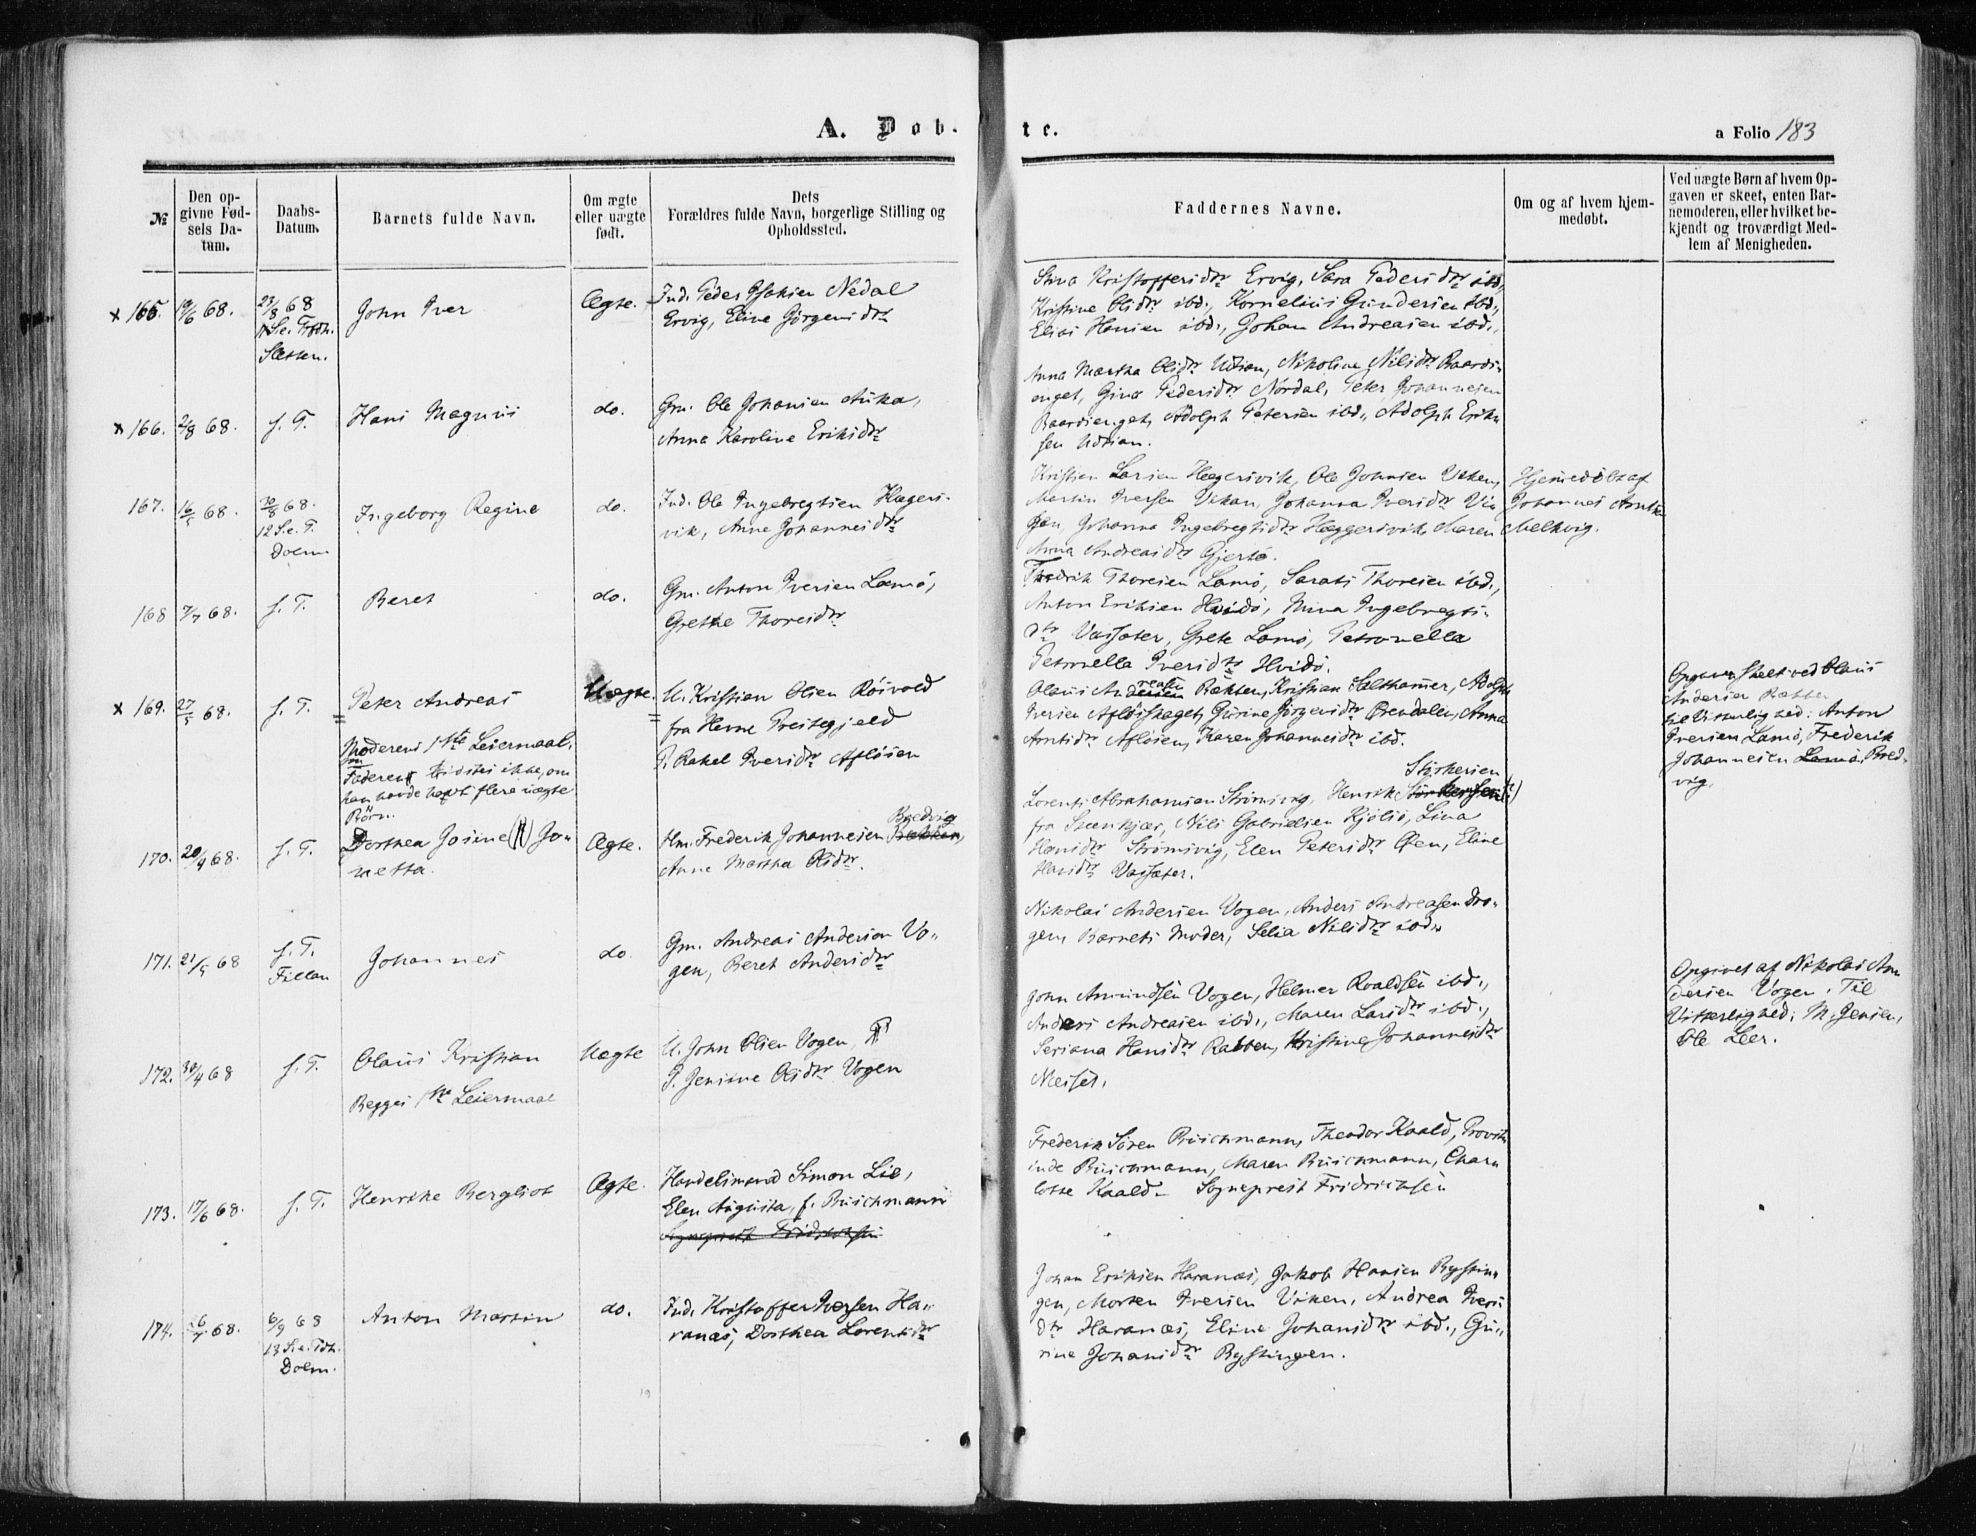 A. Døb- te.
a Folio 183
№
Den op-
givne Fød-
sels Da-
tum.
Daabs-
Datum.
Barnets fulde Navn.
Om ægte
eller uægte
født.
Dets
Forældres fulde Navn, borgerlige Stilling og
Opholdssted.
Faddernes Navne.
Om og af hvem hjem-
medøbt.
Ved uægte Børn af hvem Op-
gaven er skeet, enten Bar-
nemoderen, eller hvilket be-
kjendt og troværdigt Med-
lem af Menigheden.
x 165. 68.
23/8 68
Sletten.
John Iver
Ægte.
Ind. Peder Isaksen Nedal
Ervig, Eline Jørgensdtr
Stina Kristoffersdtr Ervig, Sara Pedersdtr ibd.,
Kristine Olsdtr ibd., Kornelius Gundersen ibd.,
Elias Hansen ibd., Johan Andreasen ibd.,
x 166. 2/8 68.
f. T.
Hans Magnus
do.
Gm. Ole Johansen Auka,
Anna Karoline Eriksdtr
Anna Martha Olsdtr Utsian, Nikoline Nilsdtr Baards-
enget, Gina Pedersdtr Nordal, Peter Johannesen
Baardsenget, Adolph Petersen ibd., Adolph Erik-
sen Utsian.
167. 16/5 68.
30/8 68.
12 S. e. T.
Dolm
Ingeborg Regine
do.
Ind. Ole Ingebregtsen Hægers-
vik, Anne Johannesdtr
Kristian Larsen Hægersvik, Ole Johnsen Utkan,
Martin Iversen Utkan, Johanna Iversdtr
Johanna Ingebregtsdtr Hæggersvik, Maren
Anna Andreasdtr Gjertø.
Hjemedøbt af
Johannes
Melkvig.
168 7/7 68.
f. T.
Beret
do.
Gm. Anton Iversen Lamø,
Grethe Thoresdtr
Fredrik Thoresen Lamø, Sarats Thoresen ibd.,
Anton Eriksen Hvidø, Mina Ingebregts-
dtr Vassæter, Grete Lamø, Petronella
Petronella Iversdtr Hvidø.
x 169. 27/5 68.
f. T.
Peter Andreas
Moderens 1ste Leiermaal.
Om
Faderen vidstes ikke, om
han havde havt flere uægte
Børn.
Uægte.
U. Kristian Olsen Røsvold
fra Hevne Præstegjeld
P. Rakel Iversdtr Afløisen
Olaus Andreasen Bækken, Kristian Salthamer, Adolph
Iversen Afløishaget, Gurine Jørgensdtr Grendalen, Anna
Arntsdtr Afløisen, Karen Johannesdtr ibd.
Opgaven skeet ved Olaus
Andersen Bækken
til Vitterlighed: Anton
Iversen Lamø, Frederik
Johannesen Lamø, Bred-
vig.
170. 20/4 68.
f. T.
Dorthea Josine Jo-
netta.
Ægte.
Hm. Frederik Johannesen Bredvig
Anne Martha Olsdtr.
Størkersen
Lorents Abrahamsen Strømsvig, Henrik
fra Steenkjær, Nils Gabrielsen Kjølsø, Lina
Hansdtr Strømsvig, Elen Petersdtr Øen, Eline
Hansdtr Vassæter.
171. 21/5 68
f. T.
Fillan
Johannes
do.
Gm. Andreas Andersen Vo-
gen, Beret Andersdtr
Nikolai Andersen Vogen, Anders Andreasen Vo-
gen, Barnets Moder, Selia Nilsdtr ibd.
172. 30/4 68
f. T.
Olaus Kristian
Begges 1ste Leiermaal
Uægte
U. John Olsen Vogen,
P. Jensine Olsdtr Vogen
John Amundsen Vogen, Helmer Roaldsen ibd.,
Anders Andreasen ibd., Maren Larsdtr ibd.,
Seriana Hansdtr Rabben, Kristine Johannesdtr
Næsset.
Opgivet af Nikolai An-
dersen Vogen. Til
Vitterlighed: M. Jensen,
Ole Leer.
173. 17/6 68.
f. T.
Henrike Bergliot
Ægte.
Handelsmand Simon Lie,
Elen Augusta, f. Buschmann
Sognepræst Fridrichsen
Frederik Søren Buschmann, Theodor Kaald,
Buschmann, Maren Buschmann, Char-
lotte Kaald. Sognepræst Fridrichsen
174. 68.
6/9 68
13 S. e. Tr.
Dolm.
Anton Martin
do.
Ind. Kristoffer Iversen Ha-
ranæs, Dorthea Lorentsdtr
Johan Eriksen Haranæs, Jakob Hansen Bystin-
gen, Morten Iversen Utkan, Andrea Ivers-
dtr Haranæs, Eline Johansdtr ibd., Gu-
rine Johansdtr Bystingen.